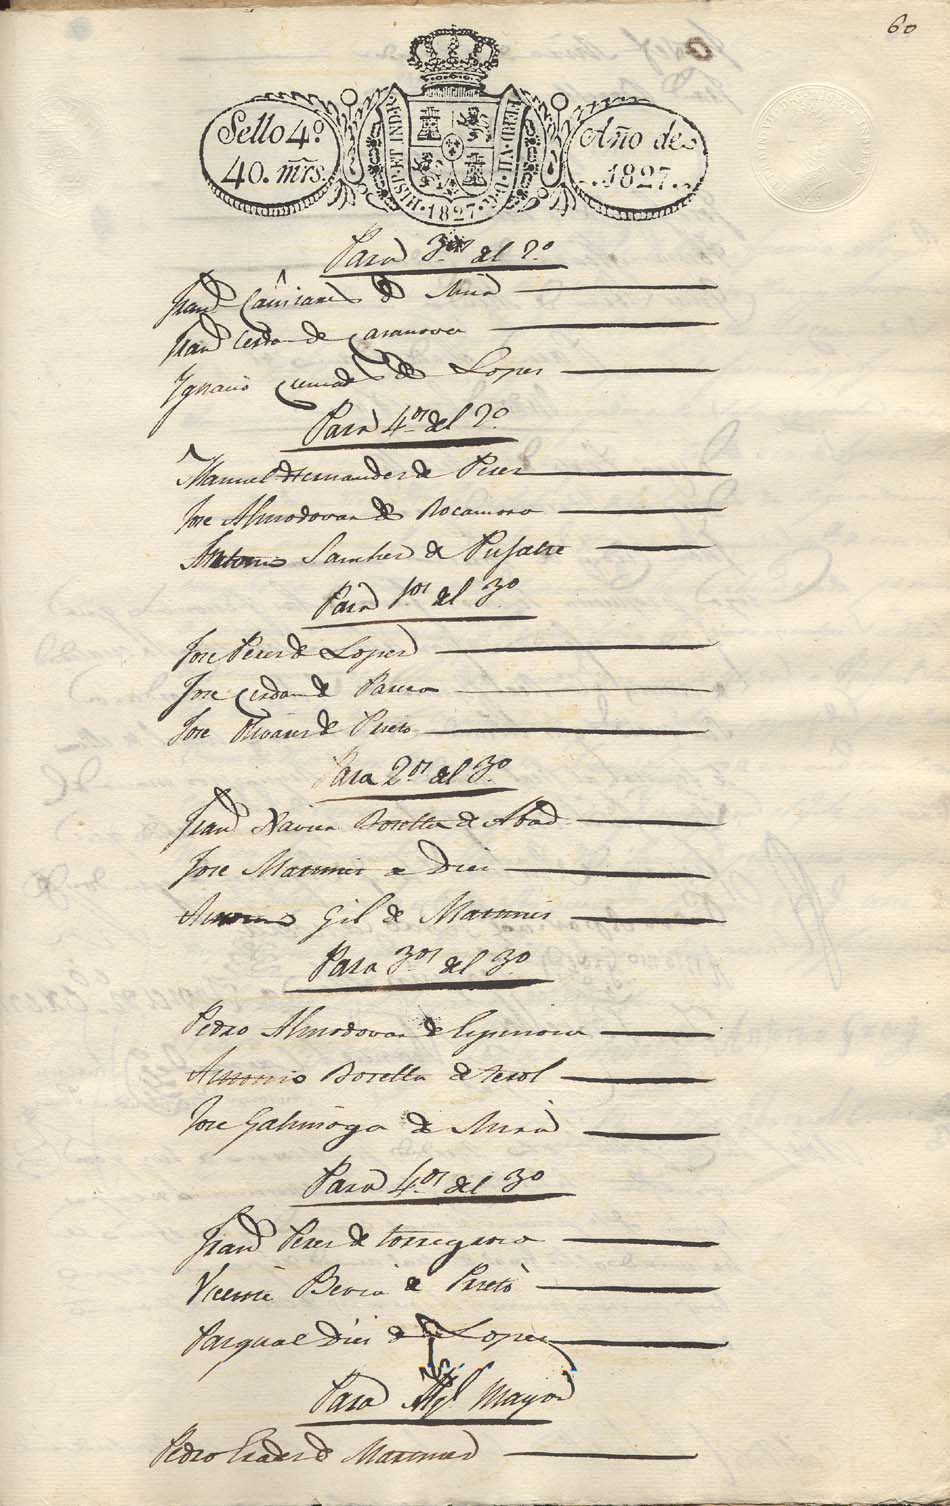 60
Sello 4º
40. mrs.
HISP. ET IND. R.
FERD. VII. D. G.
·1827·
Año de
1827.
Para 3.os del 2.o
Fran.co Cañizares de Mira
Fran.co Cerdan de Casanova
Ignacio de Lopez
Para 4.os del 2.o
Manuel Hernandez de Perez
Jose Almodovar de Rocamora
Antonio Sanchez de Pujalte
Para 1.os del 3.o
Jose Perez de Lopez
Jose Cerdan de
Jose de Prieto
Para 2.os del 3.o
Fran.co Navier Botella de Abad
Jose Martinez de Diez
Antonio Gil de Martinez
Para 3.os del 3.o
Pedro Almodovar de Espinosa
Antonio Botella de Terol
Jose Galinsoga de Mira
Para 4.os del 3.o
Fran.co Perez de Torregrosa
Vicente Bevia de Prieto
Pasqual Diez de Lopez
Para Alg.l Mayor
Pedro de Martinez